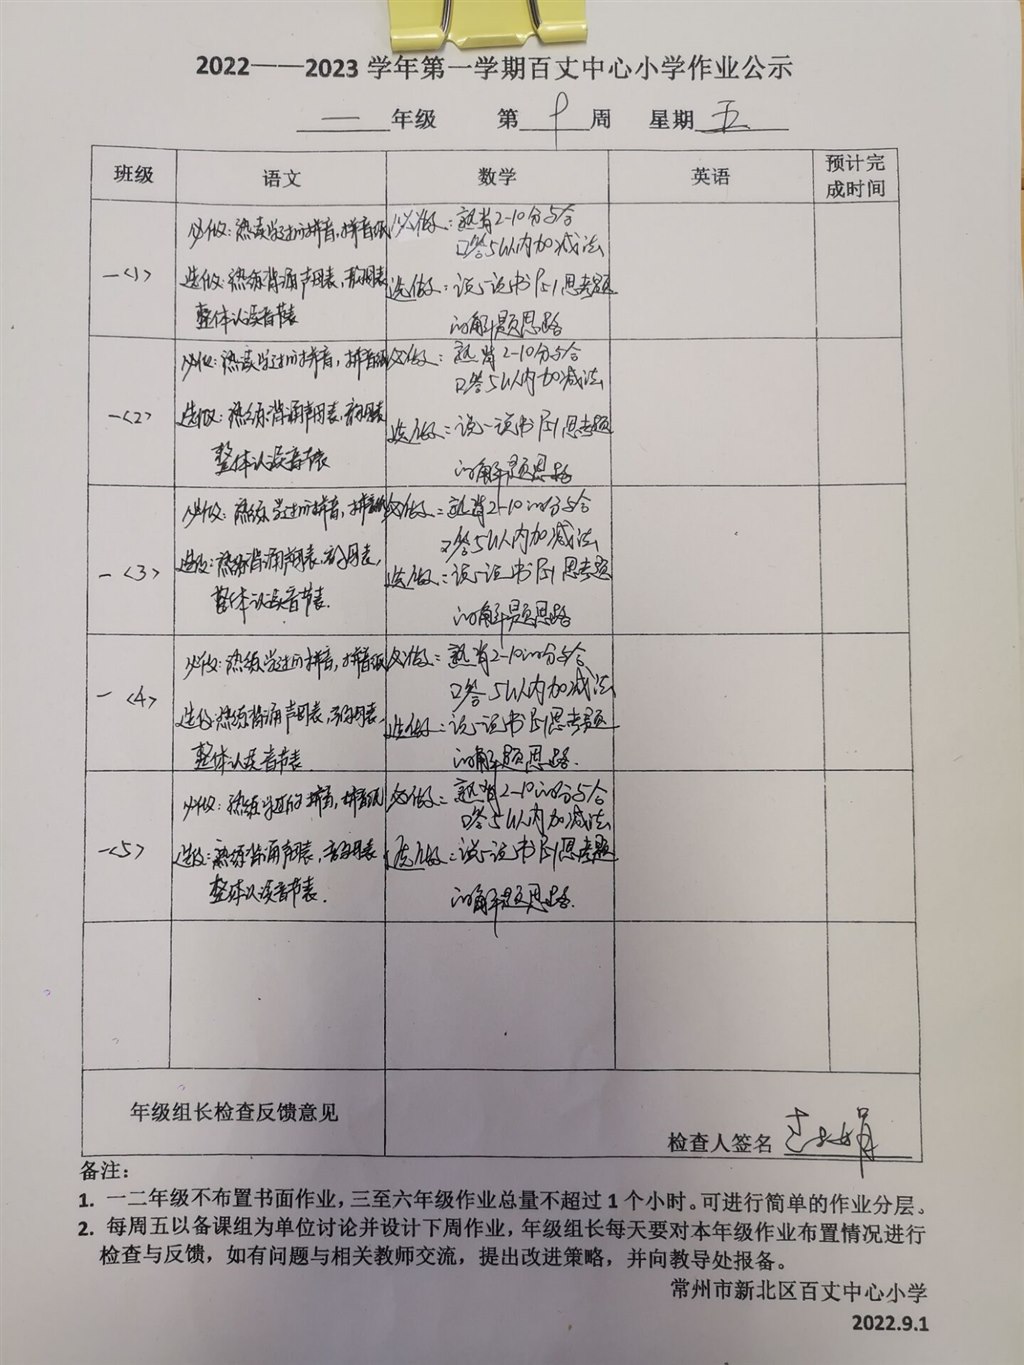 2022——2023 学年第一学期百丈中心小学作业公示
一 年级 第 十 周 星期 五
班级 语文 数学 英语 预计完成时间
一<1>
必做：熟读学过的拼音，拼音纸
选做：熟练背诵声母表，韵母表
整体认读音节表
必做：熟背2-10分与合
口答5以内加减法
选做：说一说书P51思考题
的解题思路
一<2>
必做：熟读学过的拼音，拼音纸
选做：熟练背诵声母表，韵母表
整体认读音节表
必做：熟背2-10分与合
口答5以内加减法
选做：说一说书P51思考题
的解题思路
一<3>
必做：熟练学过的拼音，拼音纸
选做：熟练背诵声母表，韵母表，
整体认读音节表.
必做：熟背2-10的分与合
口答5以内加减法
选做：说一说书P51思考题
的解题思路
一<4>
必做：熟练学过的拼音，拼音纸
选做：熟练背诵声母表，韵母表，
整体认读音节表.
必做：熟背2-10的分与合
口答5以内加减法
选做：说一说书P51思考题
的解题思路.
一<5>
必做：熟练学过的拼音，拼音纸
选做：熟练背诵声母表，韵母表
整体认读音节表.
必做：熟背2-10的分与合
口答5以内加减法
选做：说一说书P51思考题
的解题思路.
年级组长检查反馈意见
检查人签名
备注：
1. 一二年级不布置书面作业，三至六年级作业总量不超过 1 个小时。可进行简单的作业分层。
2. 每周五以备课组为单位讨论并设计下周作业，年级组长每天要对本年级作业布置情况进行
检查与反馈，如有问题与相关教师交流，提出改进策略，并向教导处报备。
常州市新北区百丈中心小学
2022.9.1